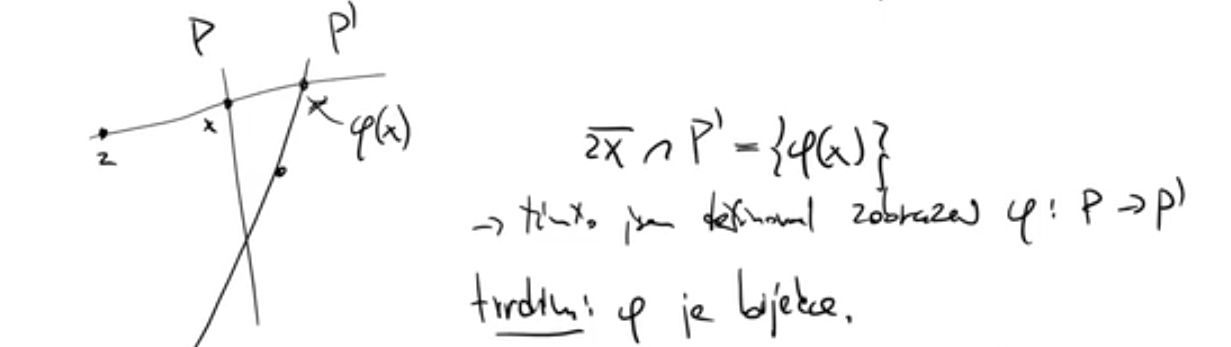 P P'
z x φ(x)
\overline{zx} ∩ P' = {φ(x)}
→ tímto jsem definoval zobrazení φ: P → P'
tvrdím: φ je bijekce.